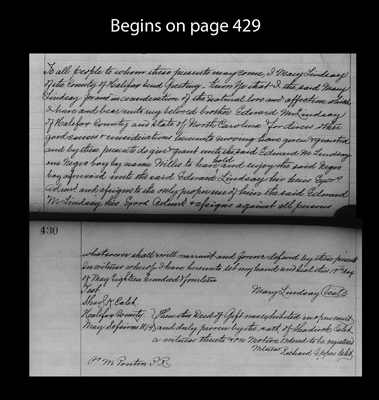 Begins on page 429
To all people to whom these presents may come, I Mary Lindsay
of the County of Halifax Send Greeting. Know Ye that I the said Mary
Lindsay for and in consideration of the Natural love and affection which
I have and bear unto my beloved brother Edward M Lindsay
of Halifax County and State of North Carolina for divers other
good causes & considerations me hereunto moving have given & granted
and by these presents do give & grant unto the said Edward M Lindsay
one Negro boy by name Willis to have hold and enjoy the said Negro
boy aforesaid unto the said Edward Lindsay his heirs Exors
Admrs and assigns to the only proper use of him the said Edward
M Lindsay his Exors Admrs & assigns against all persons
430
whatsoever shall will warrant and forever defend by these presents
In witness whereof I have hereunto set my hand and seal this 19th day
of May Eighteen hundred & fourteen
Test Mary Lindsay (seal)
Shad. Caleb
Halifax County When this Deed of Gift was exhibited in open court
May Sessions 1814 and duly proven by the oath of Shadrick Caleb
a witness thereto & on Motion ordered to be registered
Witness
Richard Eppes Clk
M Ponton P.R.